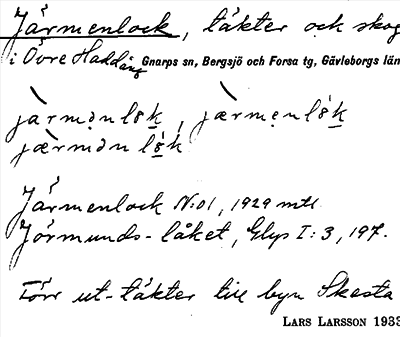 Järmenlock, täkter och skog
i Övre Haddäng Gnarps sn, Bergsjö och Forsa tg, Gävleborgs län
jarmənlòk, jærmenlók
jærmənlók
Järmenlock N:o1, 1929 mtl
Jörmunds-låket, Glys I:3, 197.
Förr ut-täkter till byn Skesta
LARS LARSSON 1933